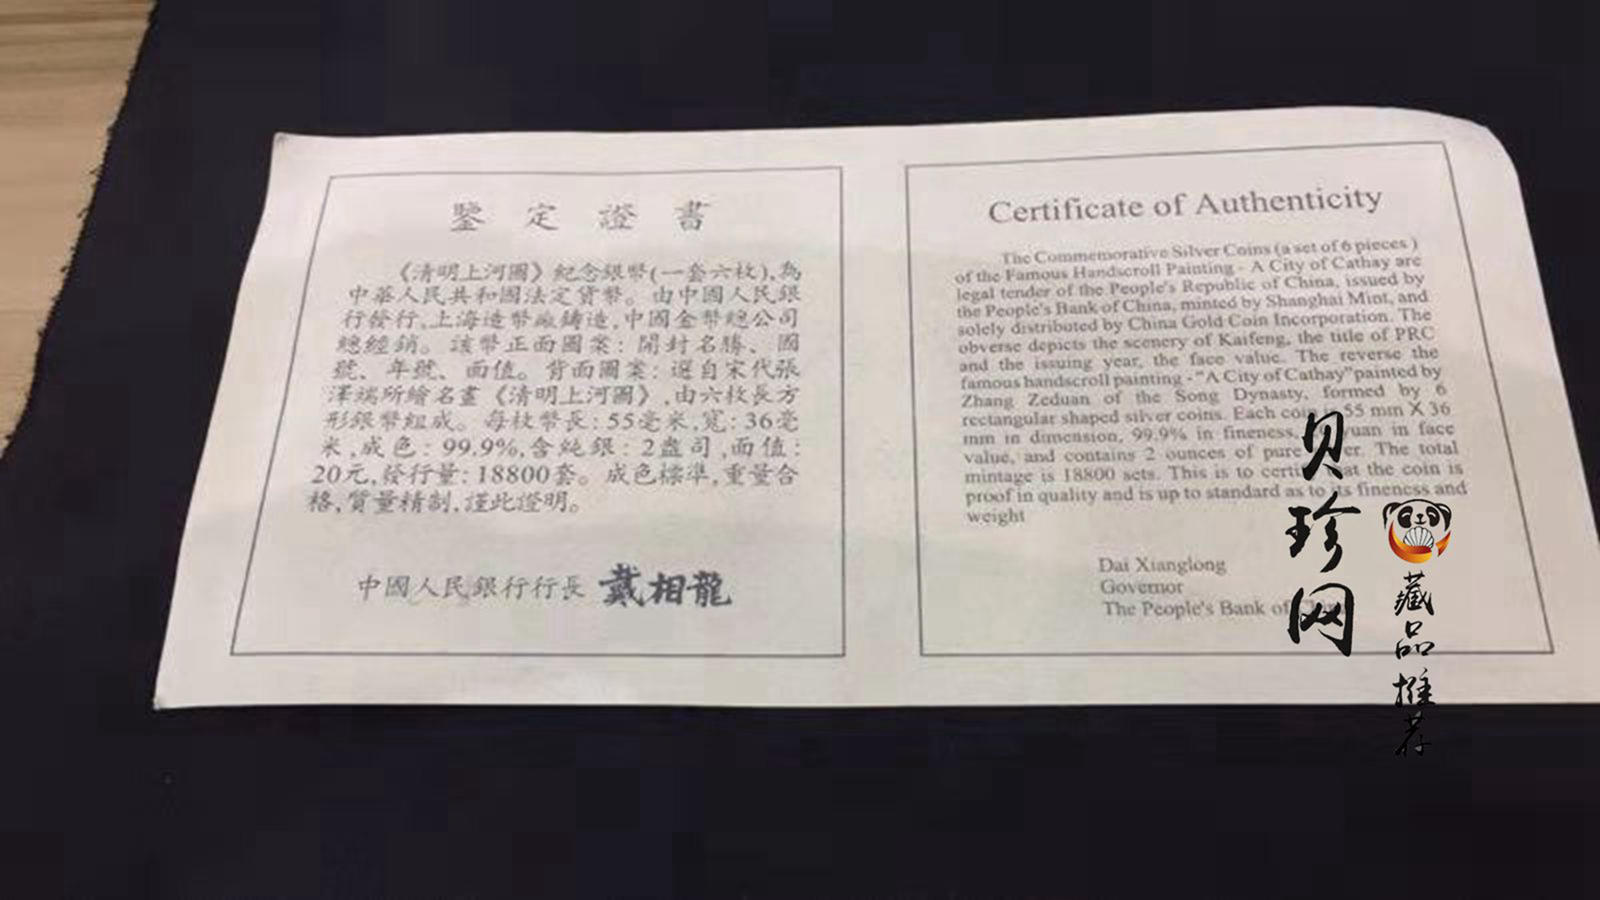 鑒定證書
《清明上河圖》紀念銀幣(一套六枚),為
中華人民共和國法定貨幣。由中國人民銀
行發行,上海造幣廠鑄造,中國金幣總公司
總經銷。該幣正面圖案:開封名勝、國
號、年號、面值。背面圖案:選自宋代張
澤端所繪名畫《清明上河圖》,由六枚長方
形銀幣組成。每枚幣長:55毫米,寬:36毫
米,成色:99.9%,含純銀:2盎司,面值:
20元,發行量:18800套。成色標準,重量合
格,質量精制,謹此證明。
中國人民銀行行長 戴相龍
Certificate of Authenticity
The Commemorative Silver Coins (a set of 6 pieces )
of the Famous Handscroll Painting - A City of Cathay are
legal tender of the People's Republic of China, issued by
the People's Bank of China, minted by Shanghai Mint, and
solely distributed by China Gold Coin Incorporation. The
obverse depicts the scenery of Kaifeng, the title of PRC
and the issuing year, the face value. The reverse the
famous handscroll painting - "A City of Cathay" painted by
Zhang Zeduan of the Song Dynasty, formed by 6
rectangular shaped silver coins. Each coin 55 mm X 36
mm in dimension, 99.9% in fineness, yuan in face
value, and contains 2 ounces of pure The total
mintage is 18800 sets. This is to that the coin is
proof in quality and is up to standard as to its fineness and
weight
Dai Xianglong
Governor
The People's Bank of
贝珍网
藏品推荐